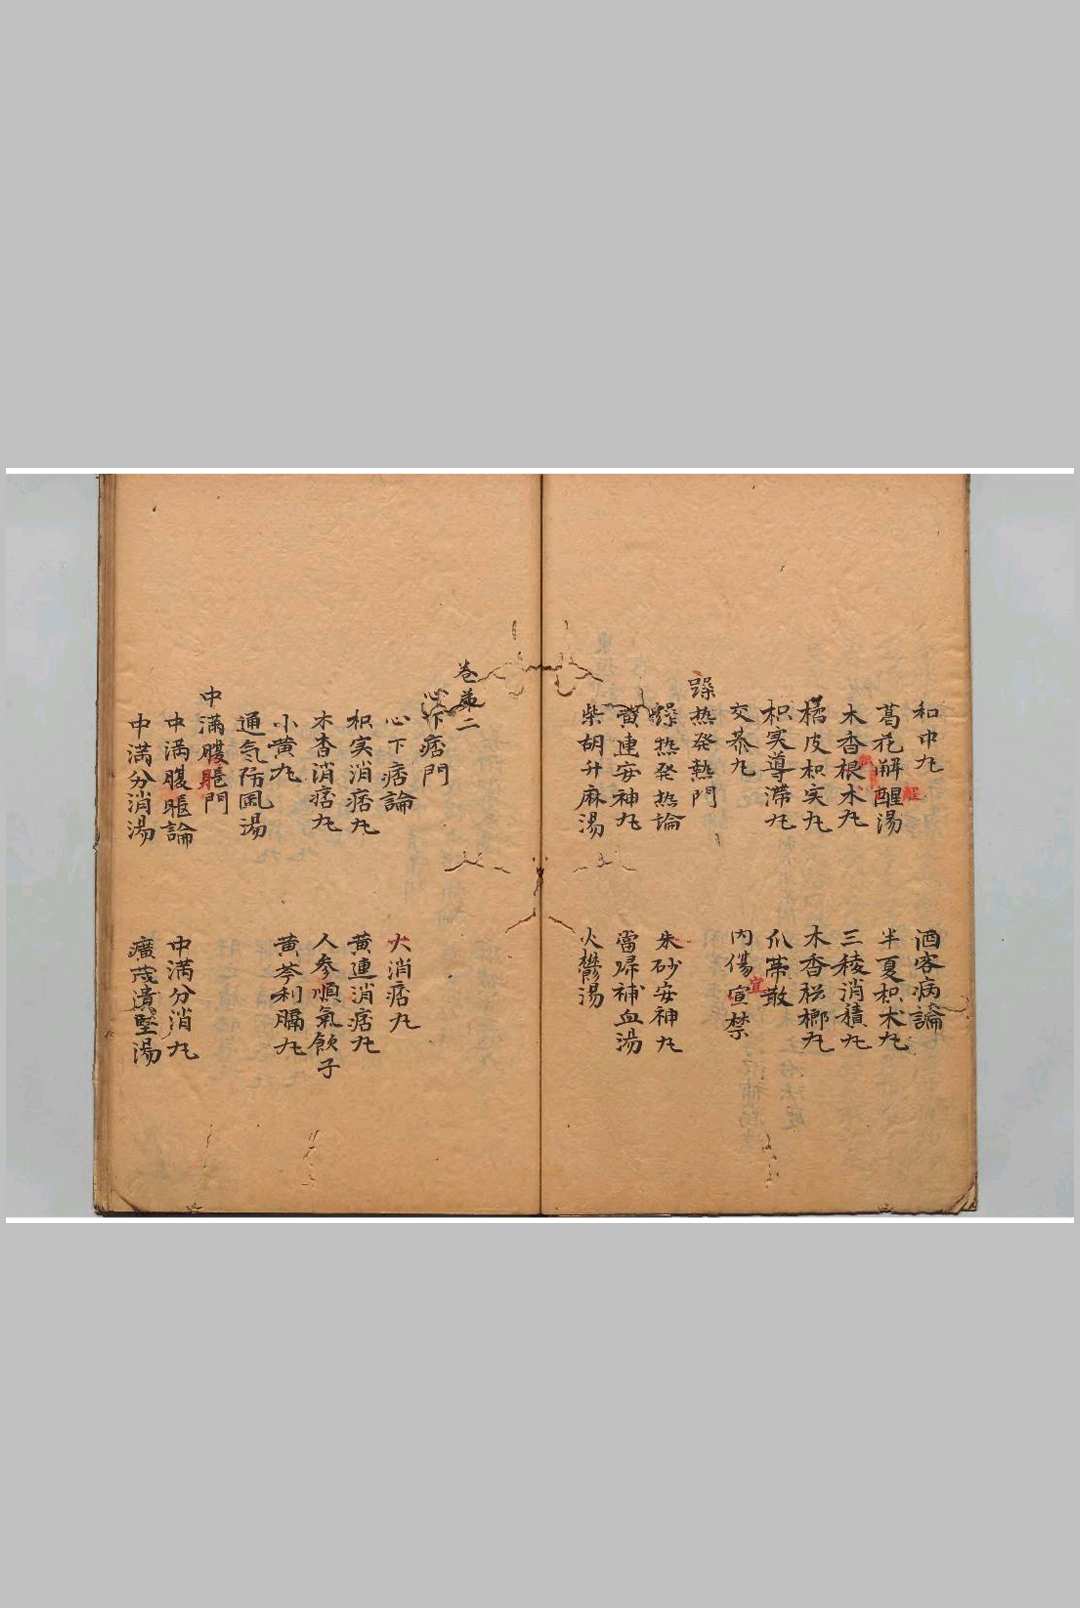 和中丸
酒客病論
葛花解醒湯
醒
半夏枳朮丸
木香
三稜消積丸
橘皮枳实丸
木香梹榔丸
枳实導滞丸
瓜蒂散
交泰丸
内傷宣禁
宜
躁热発熱門
躁热発热論
朱砂安神丸
黄連安神丸
當帰補血湯
柴胡升麻湯
火鬱湯
巻第二
心下痞門
心下痞論
大消痞丸
枳实消痞丸
黄連消痞丸
木香消痞丸
人参順氣飲子
小黄丸
黄芩利膈丸
通气防風湯
中満腹脹門
中満腹脹論
中満分消丸
中満分消湯
廣茂潰堅湯